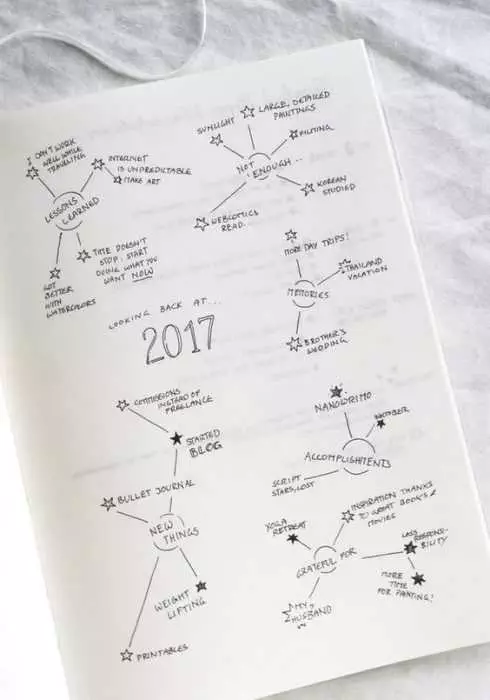 I CAN'T WORK
WELL WHILE
TRAVELING
INTERNET
IS UNPREDICTABLE
MAKE ART
LESSONS
LEARNED
TIME DOESN'T
STOP. START
DOING WHAT YOU
WANT NOW
GOT
BETTER
WITH
WATERCOLORS
SUNLIGHT
LARGE, DETAILED
PAINTINGS
NOT
ENOUGH...
KOREAN
STUDIED
WEBCOMICS
READ...
MORE DAY TRIPS!
THAILAND
VACATION
MEMORIES
BROTHER'S
WEDDING
LOOKING BACK AT...
2017
COMMISSIONS
INSTEAD OF
FREELANCE
STARTED
BLOG
BULLET JOURNAL
NEW
THINGS
WEIGHT
LIFTING
PRINTABLES
NANOWRIMO
INKTOBER
ACCOMPLISHMENTS
SCRIPT
STARS, LOST
INSPIRATION THANKS
TO GREAT BOOKS &
MOVIES
YOGA
RETREAT
LESS
RESPONSI-
BILITY
GRATEFUL FOR
MORE
TIME
FOR PAINTING!
MY
HUSBAND